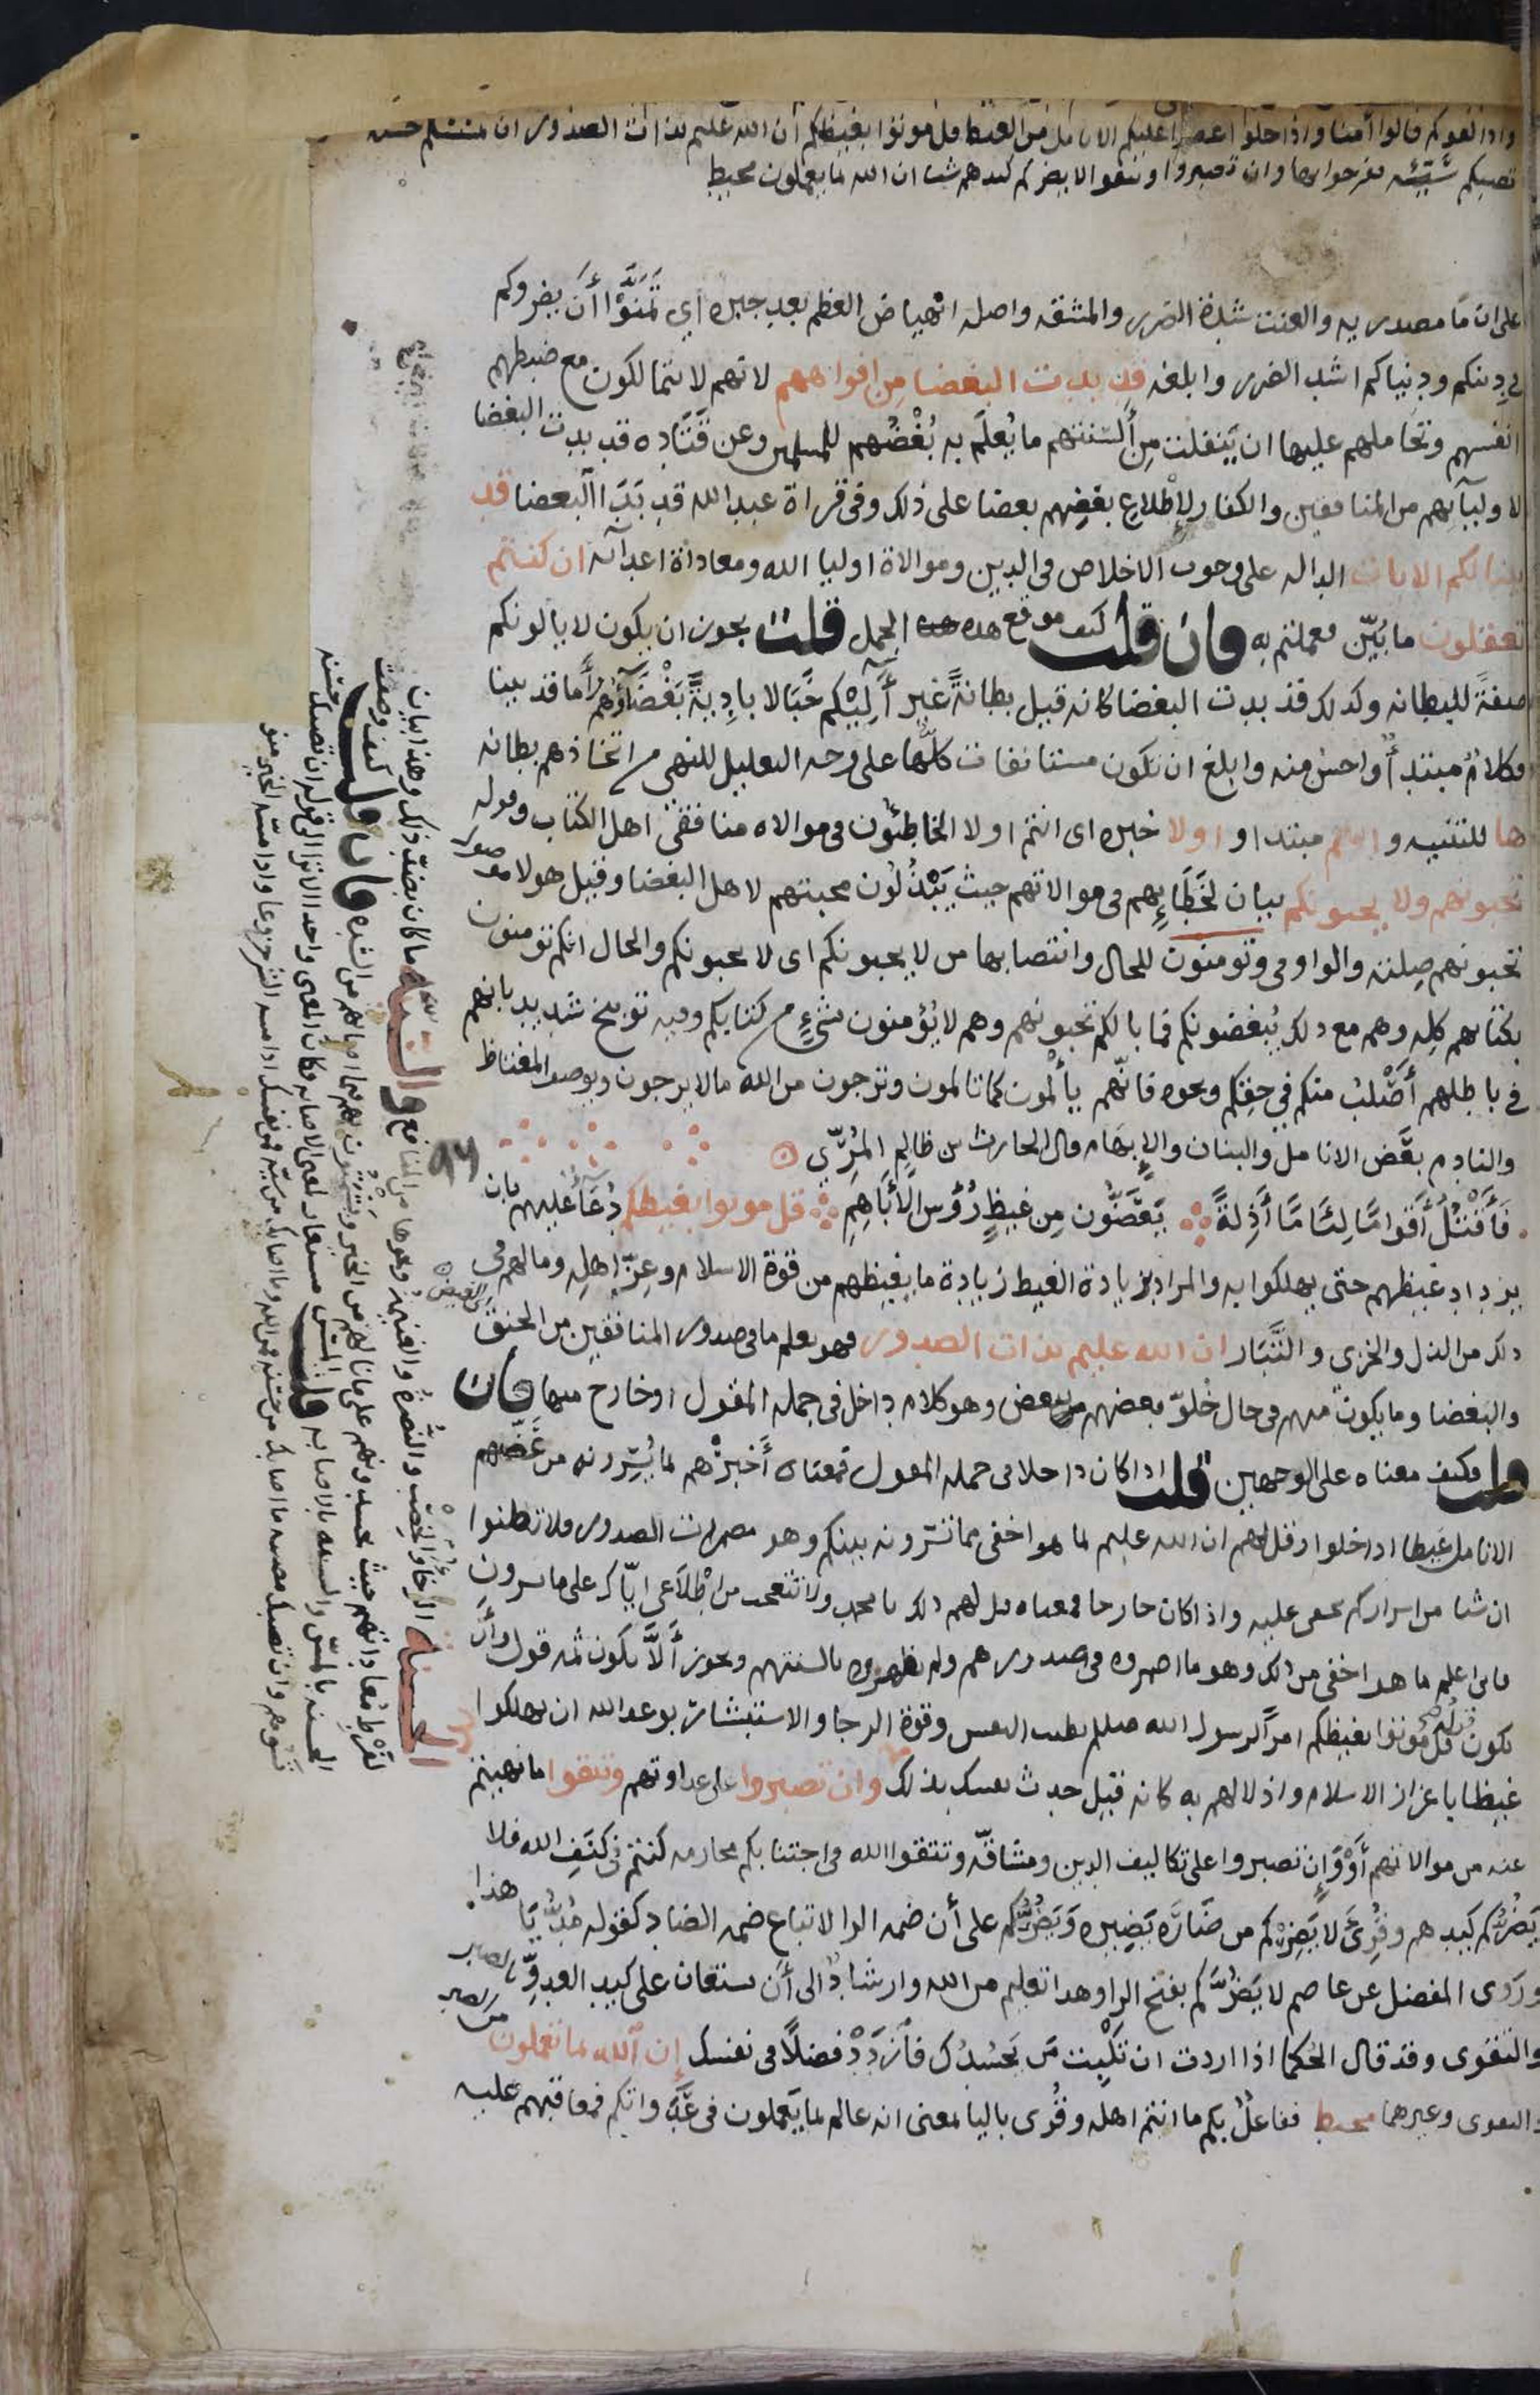 واذا لقوكم قالوا آمنا واذا خلوا عضوا عليكم الانامل من الغيظ قل موتوا بغيظكم ان الله عليم بذات الصدور ان تمسسكم حسنة
تصبكم سيئة يفرحوا بها وان تصبروا وتتقوا لا يضركم كيدهم شيا ان الله بما يعملون محيط
على ان ما مصدريه والعنت شدة الضرر والمشقه واصله انهياض العظم بعد جبره اي تمنوا أن يضروكم
في دينكم ودنياكم اشد الضرر وابلغه قد بدت البغضا من افواههم لانهم لا يتمالكون مع ضبطهم
انفسهم وتحاملهم عليها ان ينفلت من ألسنتهم ما يُعلَم به بُغْضُهم للمسلمين وعن قَتَاده قد بدت البغضا
لاوليآئهم من المنافقين والكفار لإطلاع بعضهم بعضا على ذلك وفي قراة عبد الله قد بَدَا البغضا قد
بينا لكم الايات الداله على وجوب الاخلاص في الدين وموالاة اوليا الله ومعاداة اعدآئه ان كنتم
تعقلون ما بُيّن لكم فعملتم به فان قلت كيف موقع هذه الجمل قلت يجوز ان يكون لا يالونكم
صفةً للبطانه وكذلك قد بدت البغضا كانه قيل بطانةً غير آلِيْكم خَبَالا بادِيةً بَغْضَآؤهم وأما قد بينا
فكلامٌ مبتدأٌ واحسن منه وابلغ ان تكون مستانفات كلّها على وجه التعليل للنهي عن اتخاذهم بطانه
ها للتنبيه و انتم مبتدا و اولا خبره اى انتم اولا الخاطئون فى موالاه منافقي اهل الكتاب وقوله
تحبونهم ولا يحبونكم بيان لخَطَائِهم فى موالاتهم حيث يَبْذُلُون محبتهم لاهل البغضا وقيل هولا موصول
تحبونهم صِلته والواو فى وتومنون للحال وانتصابها من لا يحبونكم اى لا يحبونكم والحال انكم تومنون
بكتابهم كلِه وهم مع ذلك يُبغضونكم فما بالكم تحبونهم وهم لا يُؤمنون بشيءٍ من كتابكم وفيه توبيخ شديد بانهم
في باطلهم أصْلبُ منكم في حقكم ونحوه فانّهم يألمون كما تالمون وترجون من الله مالا يرجون ويوصف المغتاظ
والنادم بعَّض الانامل والبنان والإبهام قال الحارث بن ظالِم المُرِّى
فَأَقْتُلُ أَقوامًا لِئَامًا أَذِلةً يَعَضُّون مِن غيظٍ رُؤُسَ الأَبَاهِمِ قل موتوا بغيظكم دُعَآءٌ عليهم بان
يزداد غيظهم حتى يهلكوا به والمراد بزيادة الغيظ زيادة ما يغيظهم من قوة الاسلام وعِزّ اهلِه وما لهم في
ذلك من الذل والخزى والتَّبَار ان الله عليم بذات الصدور فهو يعلم ما فى صدور المنافقين من الحنق
والبغضا وما يكون منهم فى حال خُلوّ بعضهم ببعض وهو كلام داخل فى جمله المقول او خارج منها فان
قلت فكيف معناه على الوجهين قلت اذا كان داخلا فى جمله المقول فمعناه أَخبِرْهم بما يُسِرّونه من عَضّهم
الانامل غيظا اذا خلوا وقل لهم ان الله عليم بما هو اخفى مما تسرّونه بينكم وهو مضمرات الصدور فلا تظنوا
ان شيا من اسراركم يخفى عليه واذا كان خارجا فمعناه قل لهم ذلك يا محمد ولا تتعجب من اطْلاَعى ايّاك على ما يسرون
فانى اعلم ما هو اخفى من ذلك وهو ما اضمروه فى صدورهم ولم يظهروه بالسنتهم ويجوز أَلاَّ يكون ثَمّ قول وأن
يكون قولُه قل موتوا بغيظكم امرًا لرسول الله صلعم بطيب النفس وقوة الرجا والاستبشار بوعد الله ان يهلكوا
غيظا باعزاز الاسلام واذلالهم به كانه قيل حدث نفسك بذلك وان تصبروا على عداوتهم وتتقوا ما نهيتم
عنه من موالاتهم أوْ وَإن تصبروا على تكاليف الدين ومشاقّه وتتقوا الله فى اجتنابكم محارمه كنتم في كنَفِ الله فلا
يَضُرُّكم كيدهم وقُرِئَ لا يَضِرْكم من ضَارَّه يَضِيره وَيَضُرُّكم على أن ضمه الرا لاتباع ضمه الضاد كقوله مُدُّ يَا هذا
ورَوى المفضل عن عاصم لا يَضُرَّكم بفتح الرا وهذا تعليم من الله وارشادٌ الى أن يستعان على كيد العدوِّ بالصبر
والتقوى وقد قال الحُكما اذا اردت ان تكْبِت مَن يَحْسُدُك فازدَدْ فضلاً فى نفسك إن الله بما تعملون من الصبر
والتقوى وغيرهما محيط ففاعلٌ بكم ما انتم اهله وقُرى باليا بمعنى انه عالم بما يَعملون فى عَدَاواتكم فمعاقبهم عليه
٩٤
الحسنة الرخاء والخِصْب والنُّصرةُ والغنيمة ونحوها من المنافع والسيئة ما كان بضد ذلك وهذا بيان
لفَرْط مُعاداتهم حيث يحسدونهم على ما نالهم من الخير ويشمتون بهم فيما اصابهم من الشده فان قلت كيف وصفت
الحسنه بالمسّ والسيئه بالاصابه قلت المسّ مستعار لمعنى الاصابه فكان المعنى واحدا الا ترا الى قوله ان تصبك حسنه
تسوهم وان تصبك مصيبه ما اصابك من حسنة فمن الله وما اصابك من سيّة فمن نفسك اذا مسه الشر جزوعا واذا مسّه الخير منوعا